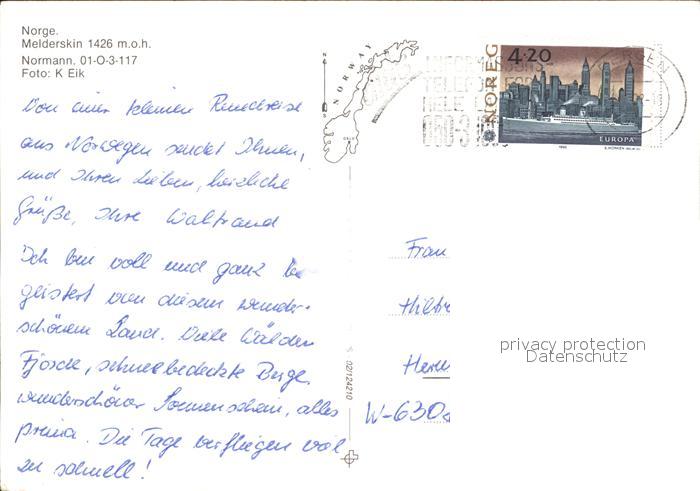 Norge.
Melderskin 1426 m.o.h.
Normann. 01-O-3-117
Foto: K Eik
Von einer kleinen Rundreise
aus Norwegen sendet Ihnen,
und Ihren Lieben, herzliche
Grüße, Ihre Waltraud
Ich bin voll und ganz be
geistert von diesem wunder-
schönen Land. Viele Wälder
Fjorde, schneebedeckte Berge
wunderschöner Sonnenschein, alles
prima. Die Tage verfliegen viel
zu schnell!
NORWAY
02/124210
NOREG
4.20
EUROPA
Frau
W-630
privacy protection
Datenschutz